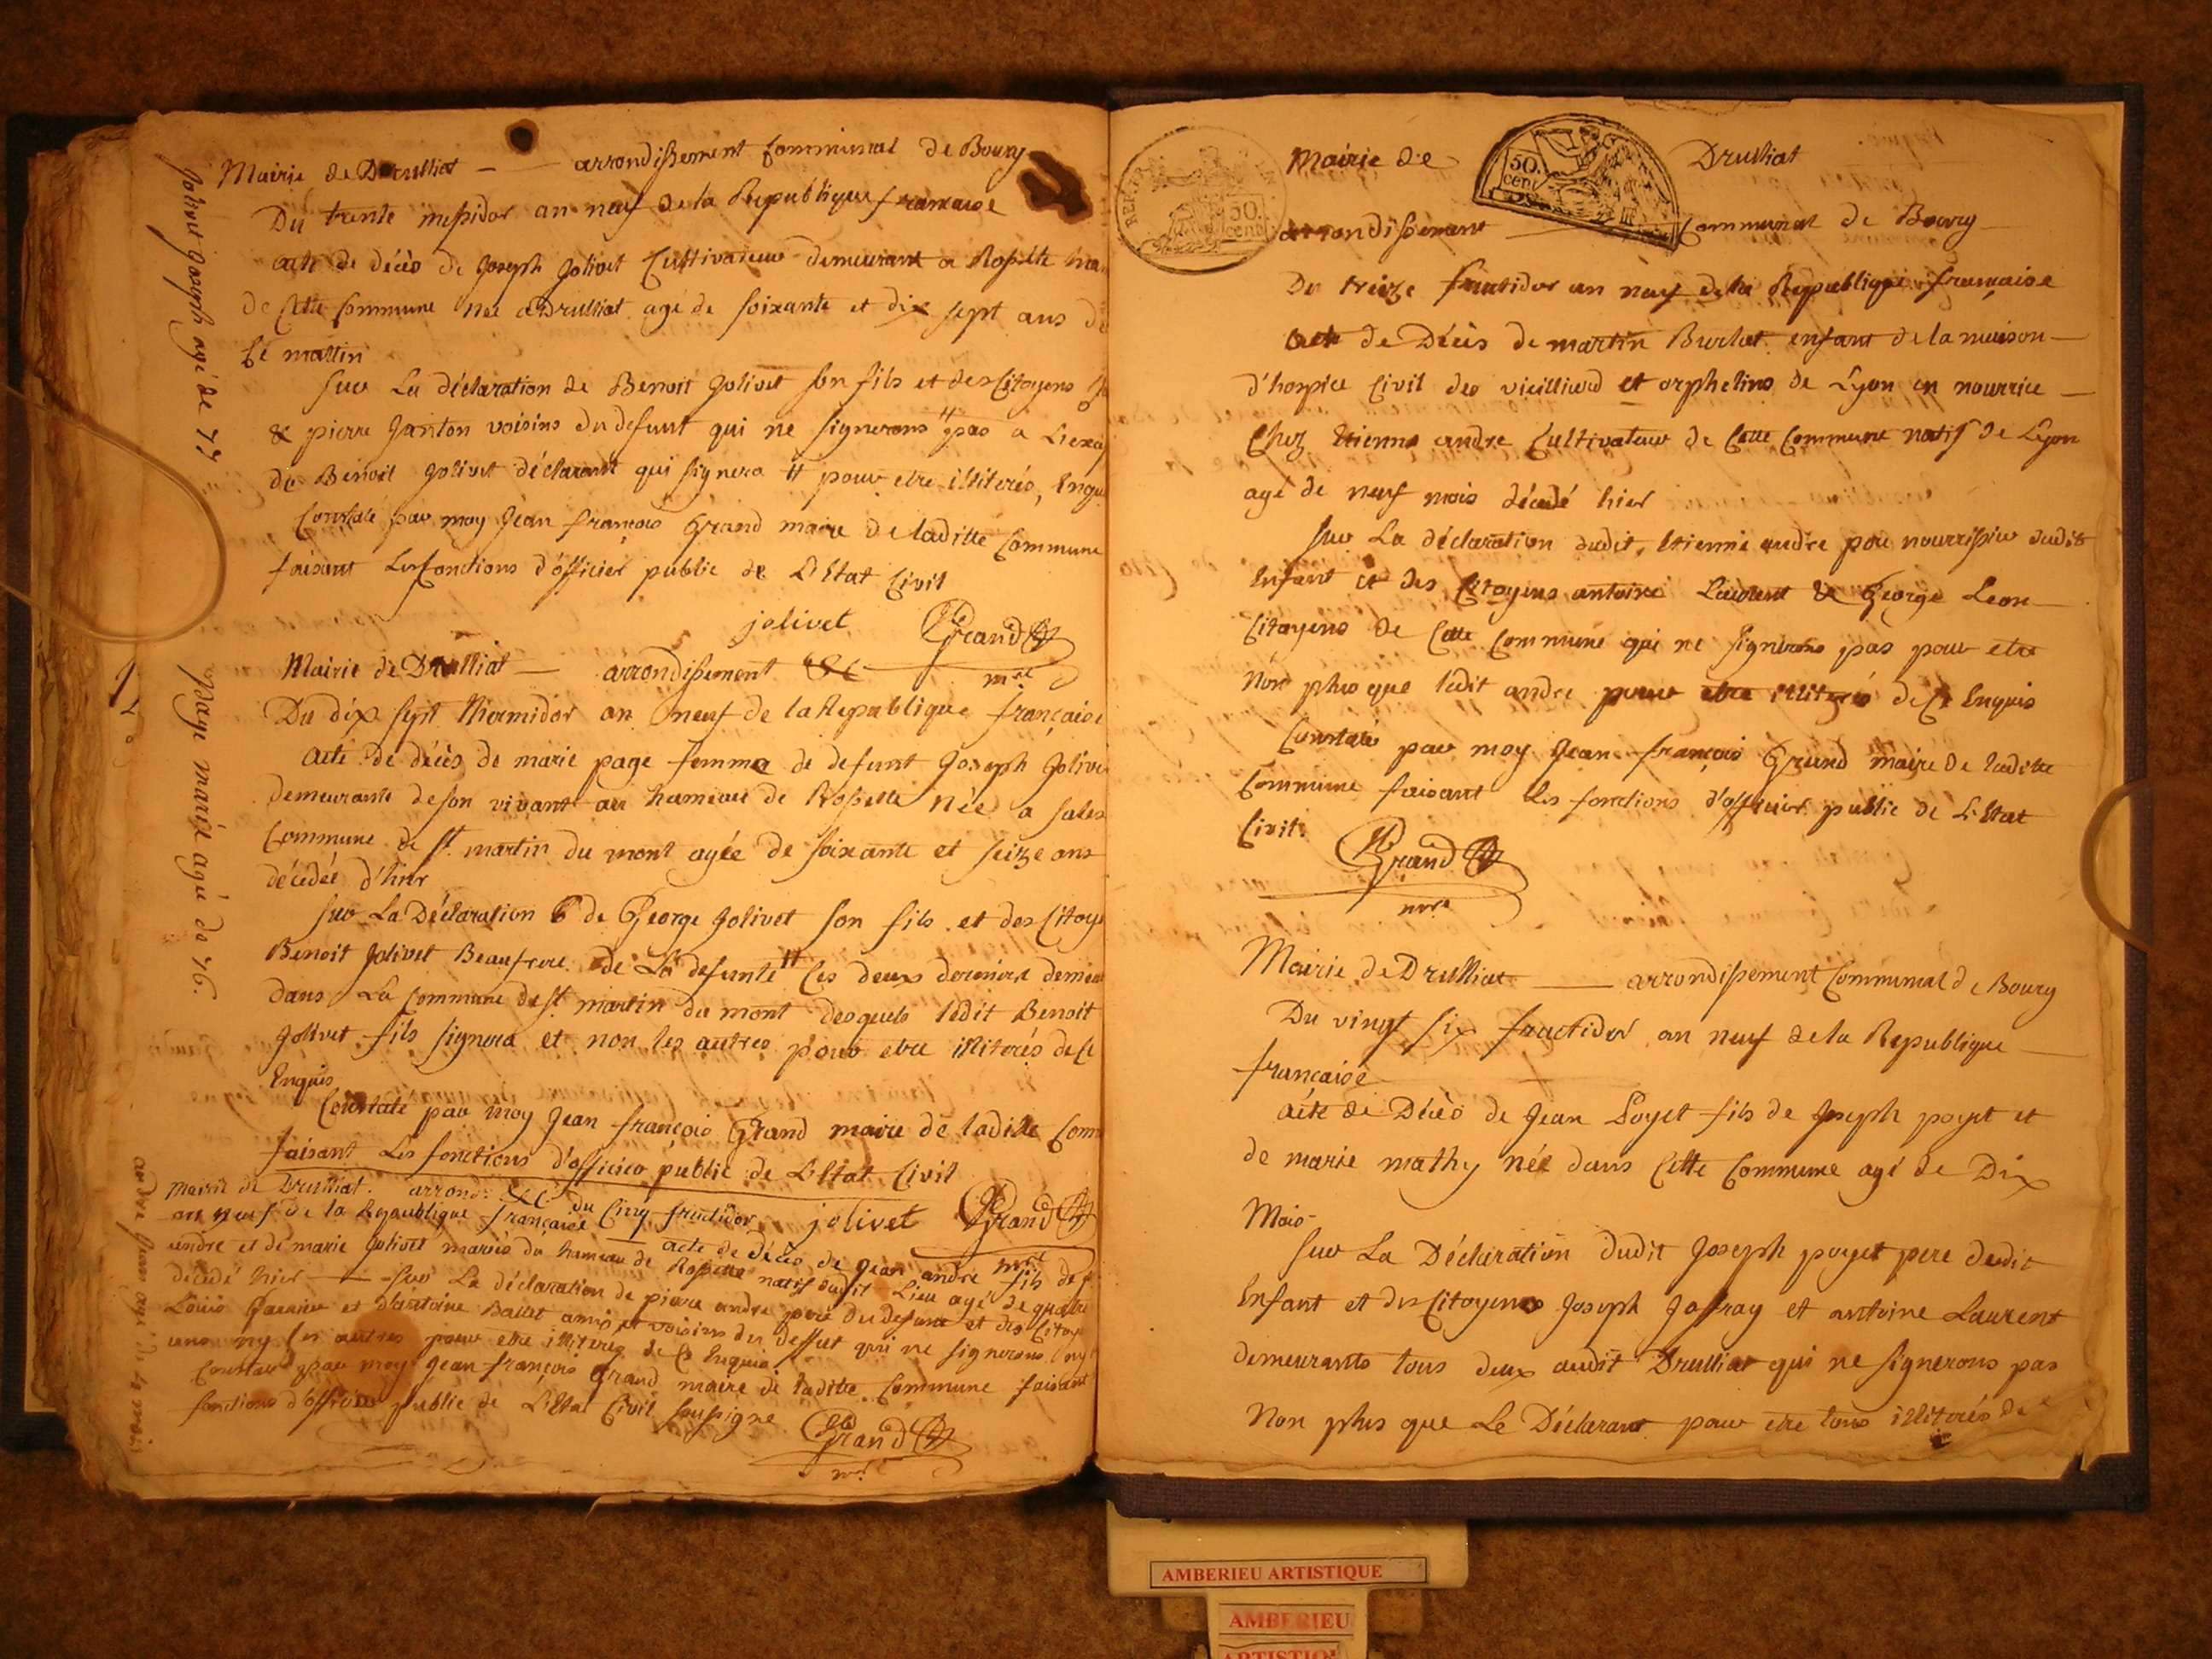 Mairie de Drulliat — arrondissement Communal de Bourg
Du trente messidor an neuf de la Republique francaise
acte de décès de Joseph Jolivet Cultivateur demeurant a Rossette
de Cette Commune née a Drulliat agé de soixante et dix sept ans
Ce mattin
Sur La déclaration de Benoit Jolivet son fils et des Citoyens
& pierre Janton voisins du defunt qui ne signerons pas a
de Benoit Jolivet déclarant qui signera # pour etre illiterés,
Constaté par moy Jean francois Grand maire de laditte Commune
faisant Les fonctions d'officier public de L'Etat Civil
jolivet Grand
mre
Jolivet Joseph agé de 77
Mairie de Drulliat — arrondissement &c
Du dix sept Thermidor an neuf de la Republique française
acte de décès de marie page femme de defunt Joseph
demeurante de son vivant au hameau de Rossette née a
Commune de St. martin du mont agée de soixante et seize ans
décédée d'hier
Sur La Déclaration de George Jolivet son fils et des
Benoit Jolivet Beaufrere de La defunte # Ces deux derniers
dans La Commune de St. martin du mont desquels ledit Benoit
Jolivet fils signera et non les autres pour etre illiterés de Ce
Enquis
Constaté par moy Jean françois Grand maire de laditte
faisant Les fonctions d'officier public de L'Etat Civil
jolivet Grand
mre
page marie agée de 76.
Mairie de Drulliat. arrond. &c du Cinq fructidor
an neuf de la Republique française — acte de décès de Jean andré fils de
andré et de marie Jolivet mariés du hameau de Rossette natif dudit Lieu agé de quatre
décédé hier — Sur La déclaration de pierre andré pere du defunt et des
Louis et d'antoine Ballet amis et voisins du deffut qui ne signerons
uns ny les autres pour etre illiterés de Ce Enquis
Constaté par moy Jean françois Grand maire de laditte Commune faisant
fonctions d'officier public de L'Etat Civil soussigné Grand
mre
andré Jean agé de 4 mois
Mairie de Drulliat
50.
cent
arrondissement Communal de Bourg
Du treize fructidor an neuf de la Republique française
acte de Décès de martin Burlat enfant de la maison —
d'hospice Civil des vieilliard et orphelins de Lyon en nourrice —
Chez Etienne andre Cultivateur de Cette Commune natif de Lyon
agé de neuf mois décédé hier
Sur La déclaration dudit, Etienne andre pere nourrissier dudit
Enfant et des Citoyens antoine Laurent & George Leon —
Citoyens de Cette Commune qui ne signerons pas pour etre
Non plus que ledit andre pour etre illiterés de Ce Enquis
Constaté par moy Jean françois Grand maire de laditte
Commune faisant les fonctions d'officier public de L'Etat
Civil. Grand
mre
Mairie de Drulliat — arrondissement Communal de Bourg
Du vingt six fructidor an neuf de la Republique —
française
acte de Décès de Jean Poyet fils de Joseph poyet et
de marie mathy née dans Cette Commune agé de Dix
Mois
Sur La Déclaration dudit Joseph poyet pere dudit
Enfant et des Citoyens Joseph Joffray et antoine Laurent
demeurants tous deux audit Drulliat qui ne signerons pas
Non plus que Le Déclarant pour etre tous illiterés de
AMBERIEU ARTISTIQUE
AMBERIEU
ARTISTIQUE